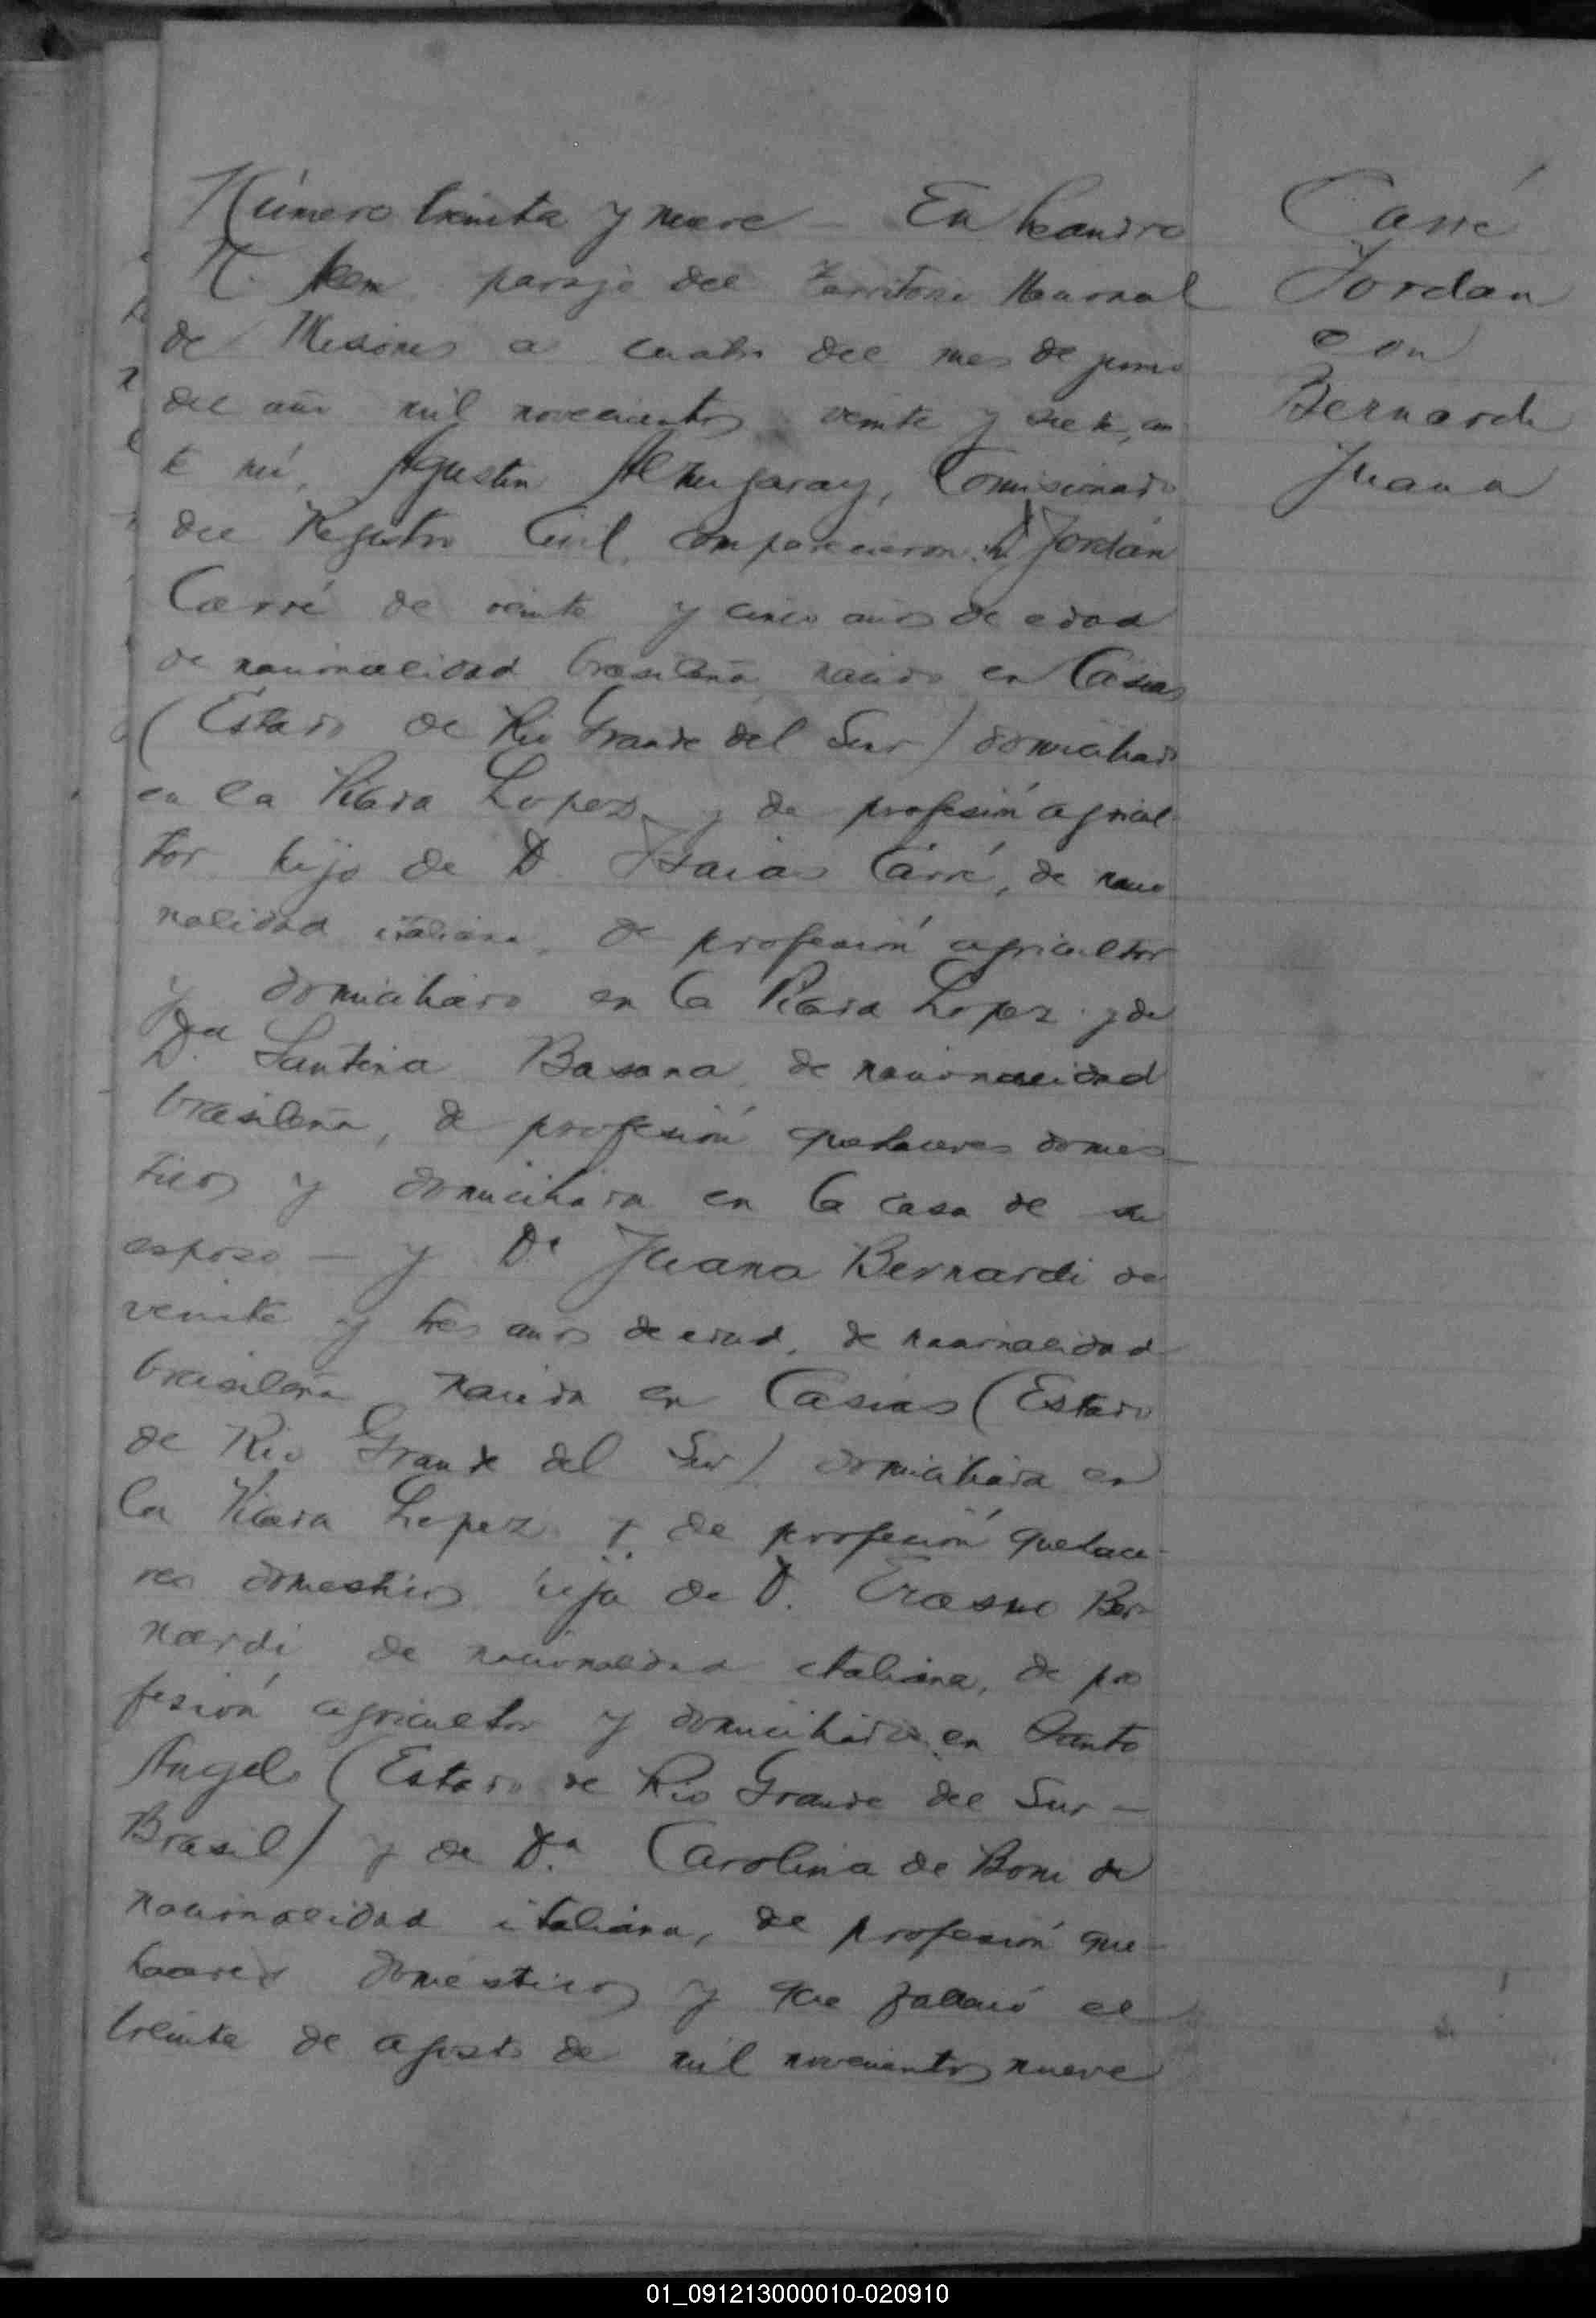 Número treinta y nueve — En Leandro
N. Alem paraje del Territorio Nacional
de Misiones a cuatro del mes de junio
del año mil novecientos veinte y siete, an
te mí, Agustin Alzugaray, Comisionado
del Registro Civil comparecieron: D. Jordán
Carré de veinte y cinco años de edad
de nacionalidad brasileña nacido en Casias
(Estado de Rio Grande del Sur) domiciliado
en la Picada Lopez y de profesión agricul
tor hijo de D. Isaias Carré, de nacio
nalidad italiana, de profesión agricultor
y domiciliado en la Picada Lopez y de
Da. Santina Basana de nacionalidad
brasileña, de profesión quehaceres domes
ticos y domiciliada en la casa de su
esposo — y Da Juana Bernardi de
veinte y tres años de edad, de nacionalidad
brasileña nacida en Casias (Estado
de Rio Grande del Sur) domiciliada en
la Picada Lopez y de profesión quehace-
res domesticos hija de D. Erasmo Ber
nardi de nacionalidad italiana, de pro
fesión agricultor y domiciliado en Santo
Angelo (Estado de Rio Grande del Sur —
Brasil) y de Da. Carolina de Boni de
nacionalidad italiana, de profesión que-
haceres domésticos y que falleció el
treinta de agosto de mil novecientos nueve
Carré
Jordan
con
Bernardi
Juana
01_091213000010-020910